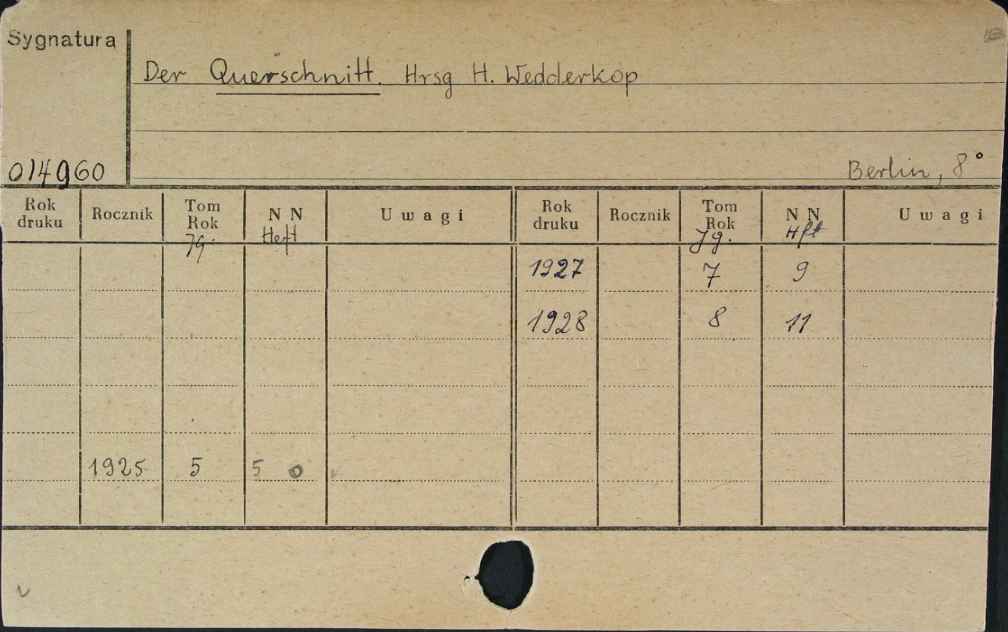 Sygnatura
Der Querschnitt. Hrsg H. Wedderkop
014960
Berlin, 8°
Rok druku Rocznik Tom Rok N N Uwagi Rok druku Rocznik Tom Rok N N Uwagi
Jg. Heft Jg. Hft
1927 7 9
1928 8 11
1925 5 5 0